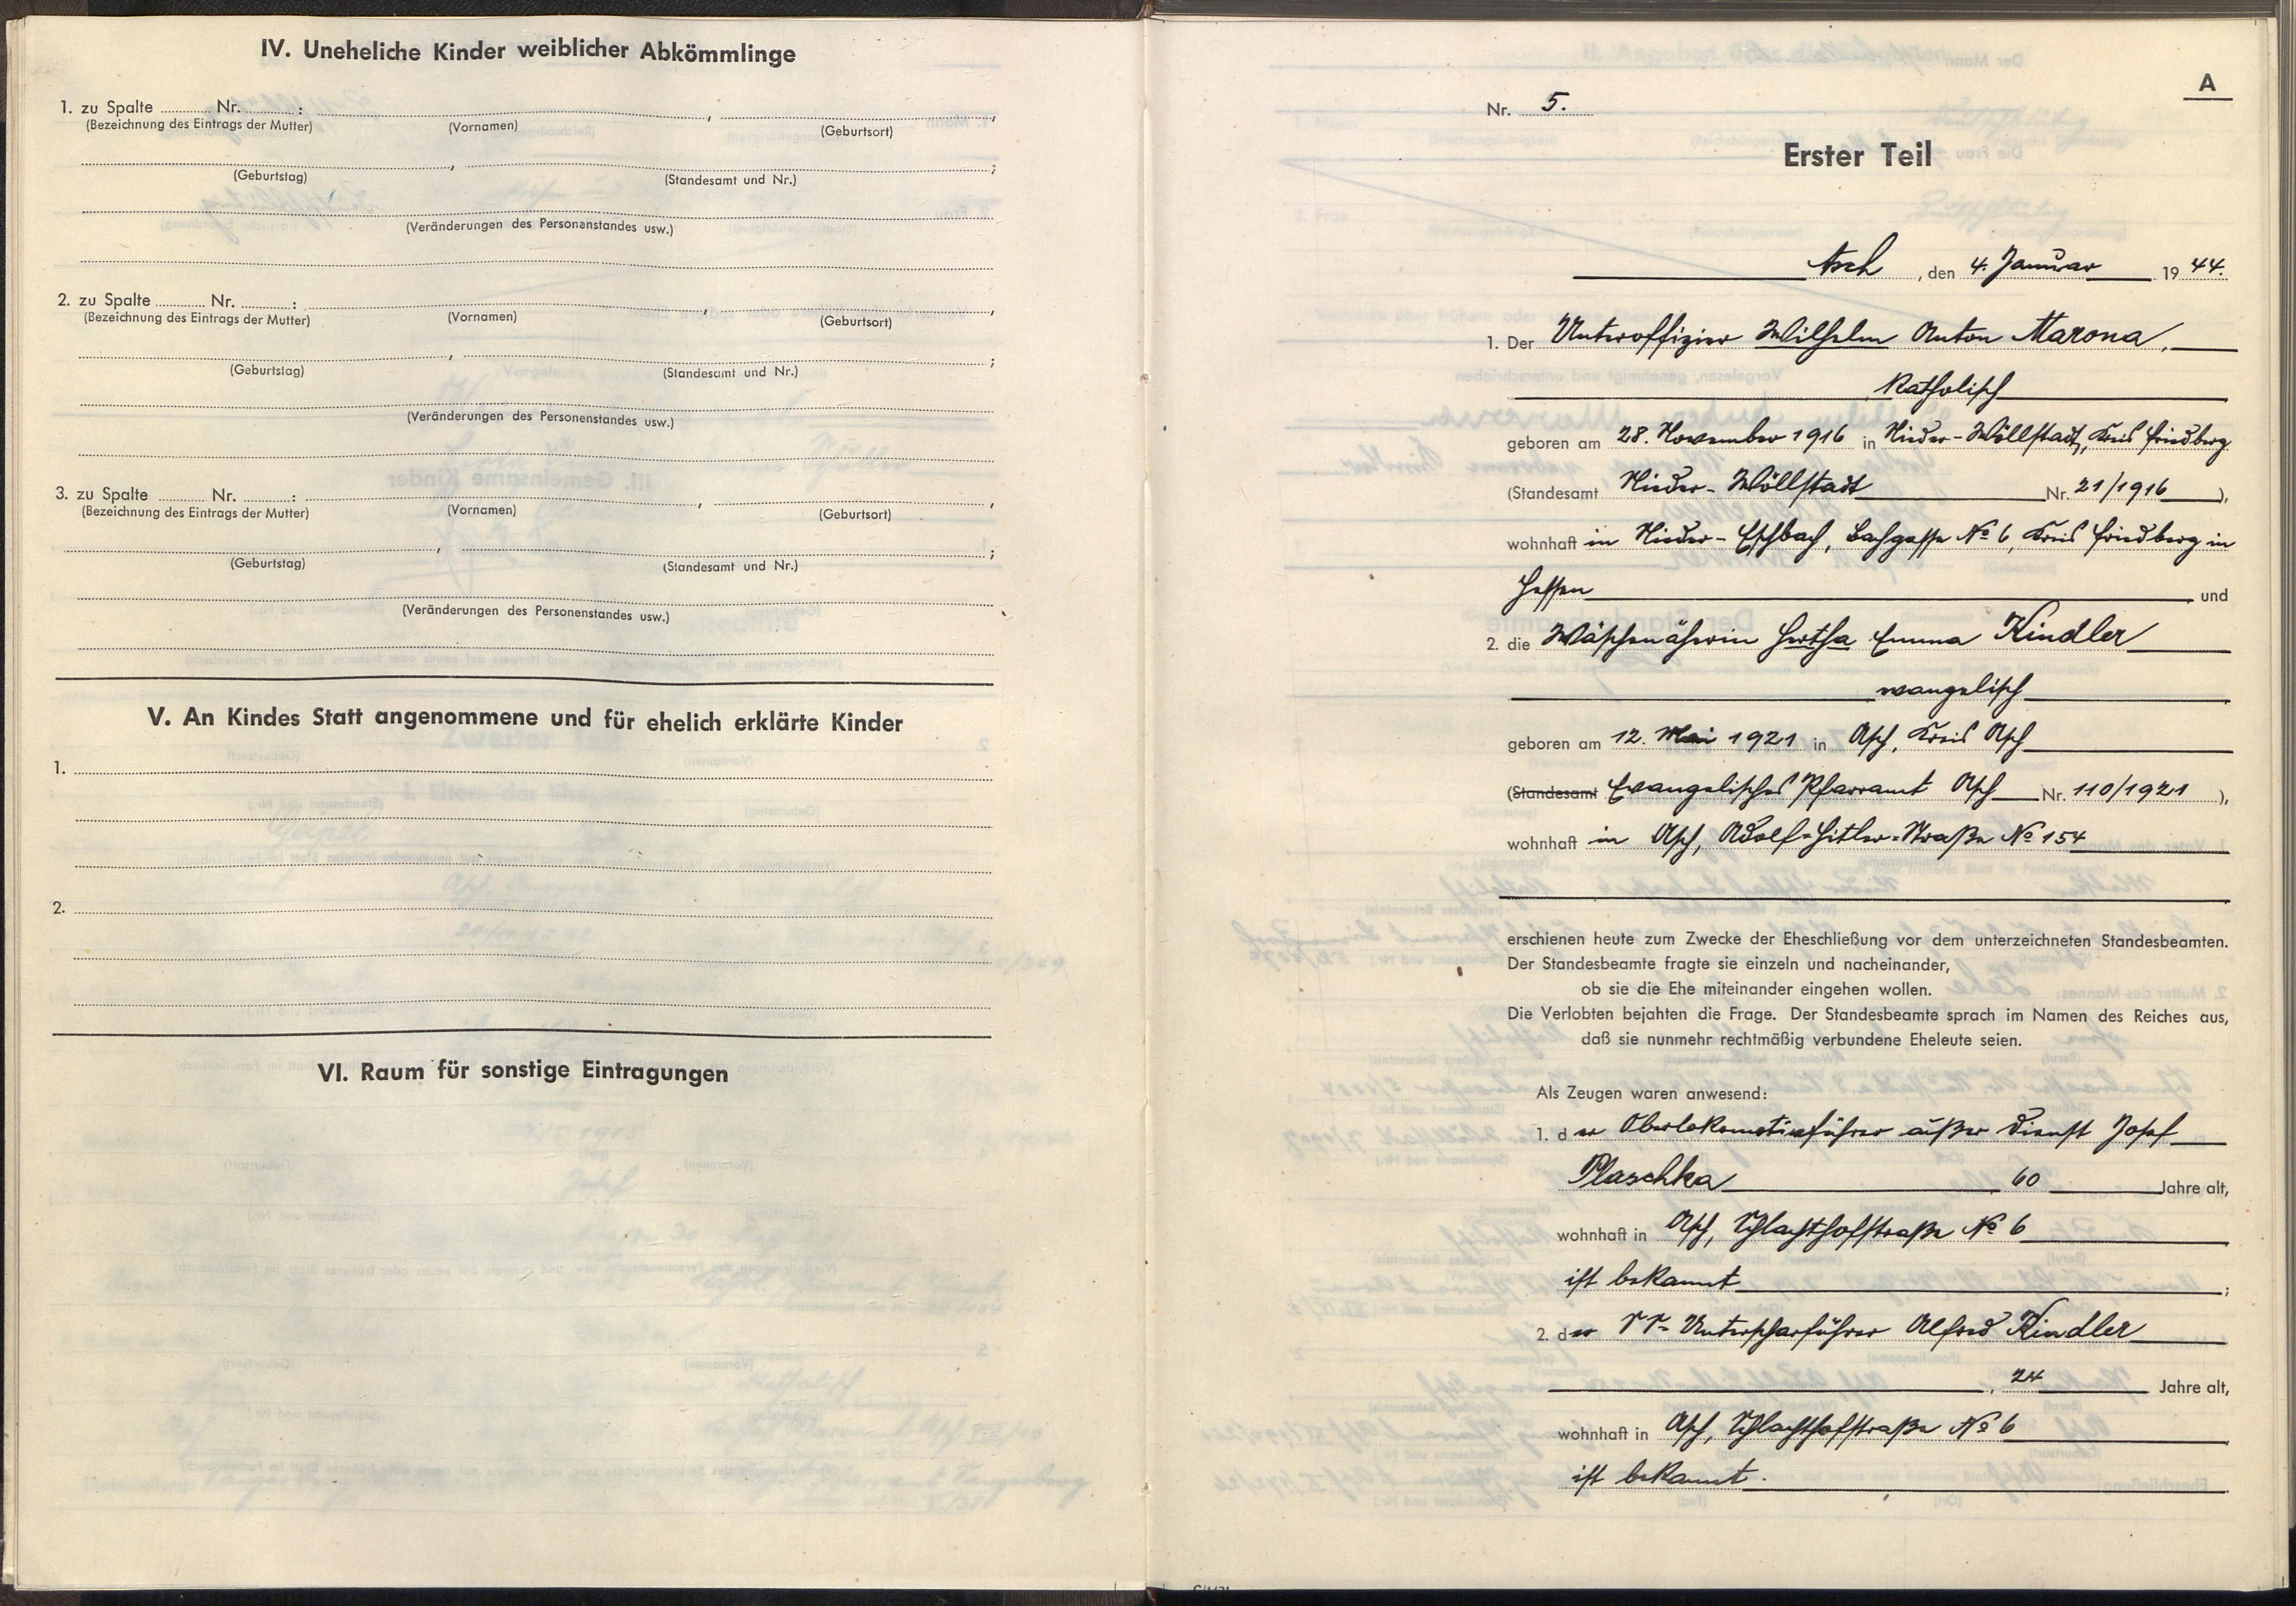 IV. Uneheliche Kinder weiblicher Abkömmlinge
1. zu Spalte ........ Nr. ........ :
(Bezeichnung des Eintrags der Mutter) (Vornamen) (Geburtsort)
(Geburtstag) (Standesamt und Nr.)
(Veränderungen des Personenstandes usw.)
2. zu Spalte ........ Nr. ........ :
(Bezeichnung des Eintrags der Mutter) (Vornamen) (Geburtsort)
(Geburtstag) (Standesamt und Nr.)
(Veränderungen des Personenstandes usw.)
3. zu Spalte ........ Nr. ........ :
(Bezeichnung des Eintrags der Mutter) (Vornamen) (Geburtsort)
(Geburtstag) (Standesamt und Nr.)
(Veränderungen des Personenstandes usw.)
V. An Kindes Statt angenommene und für ehelich erklärte Kinder
1.
2.
VI. Raum für sonstige Eintragungen
A
Nr. 5.
Erster Teil
Asch, den 4. Januar 19 44.
1. Der Unteroffizier Wilhelm Anton Marona,
katholisch
geboren am 28. November 1916 in Nieder-Wöllstadt, Kreis Friedberg
(Standesamt Nieder-Wöllstadt Nr. 21/1916),
wohnhaft in Nieder-Eschbach, Bachgasse No 6, Kreis Friedberg in
Hessen und
2. die Wäschenäherin Hertha Emma Kindler
evangelisch
geboren am 12. Mai 1921 in Asch, Kreis Asch
(Standesamt Evangelisches Pfarramt Asch Nr. 110/1921),
wohnhaft in Asch, Adolf-Hitler-Straße No 154
erschienen heute zum Zwecke der Eheschließung vor dem unterzeichneten Standesbeamten.
Der Standesbeamte fragte sie einzeln und nacheinander,
ob sie die Ehe miteinander eingehen wollen.
Die Verlobten bejahten die Frage. Der Standesbeamte sprach im Namen des Reiches aus,
daß sie nunmehr rechtmäßig verbundene Eheleute seien.
Als Zeugen waren anwesend:
1. der Oberlokomotivführer außer Dienst Josef
Plaschka 60 Jahre alt,
wohnhaft in Asch, Schlachthofstraße No 6
ist bekannt ;
2. der SS-Unterscharführer Alfred Kindler
, 24 Jahre alt,
wohnhaft in Asch, Schlachthofstraße No 6
ist bekannt.